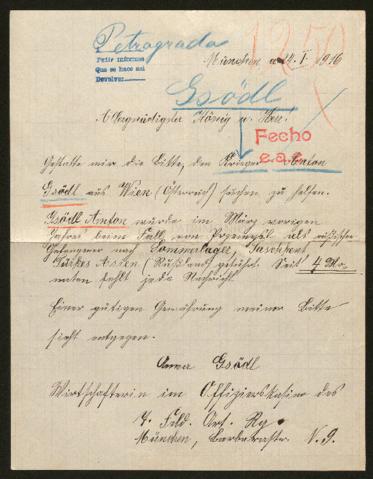 Petrograda
1350
Pedir informes
Que se hace asi
Devolver
München 24.I.1916
Gsödl
Allergnädigster König u. Herr.
Fecho
Gestatte mir die Bitte, den Krieger Anton
Gsödl aus Wien (Österreich) suchen zu helfen.
Gsödl Anton wurde im März vorigen
Jahres beim Fall von Przemysl als russischer
Gefangener nach Sommerlager, Taschkent
Turkes Asien (Rußland) geführt. Seit 4 Mo-
naten fehlt jede Nachricht.
Einer gütigen Gewährung meiner Bitte
sieht entgegen.
Anna Gsödl
Wirtschafterin im Offizierskasino des
7. Feld. Art. Rg.
München, Barbarastr. N. 9.